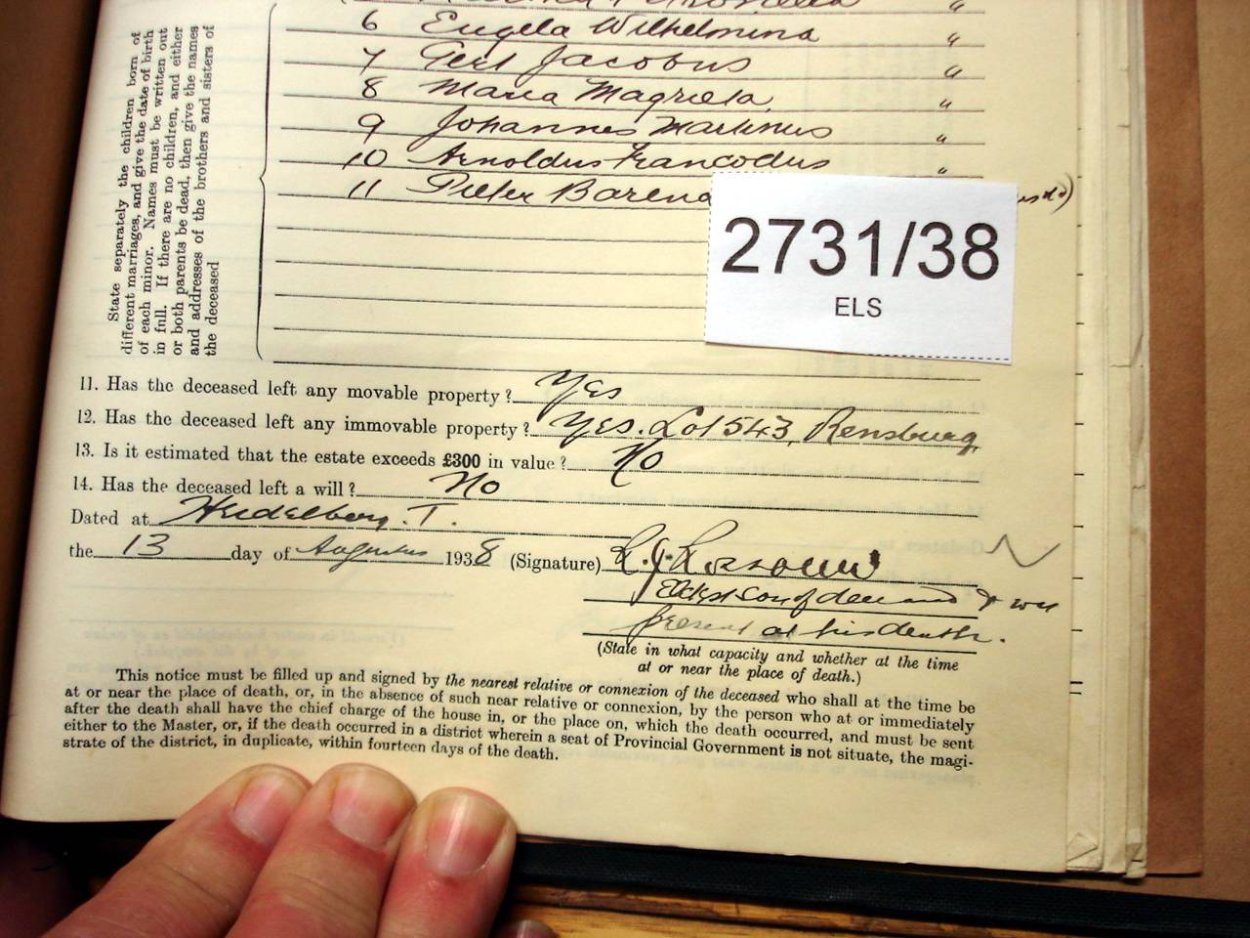 "
6 Engela Wilhelmina "
7 Gert Jacobus "
8 Maria Magriela "
9 Johannes Martinus "
10 Arnoldus Francodus "
11 Pieter Baren
2731/38
ELS
State separately the children born of
different marriages, and give the date of birth
of each minor. Names must be written out
in full. If there are no children, and either
or both parents be dead, then give the names
and addresses of the brothers and sisters of
the deceased
11. Has the deceased left any movable property? Yes
12. Has the deceased left any immovable property? Yes. Lot 543, Rensburg
13. Is it estimated that the estate exceeds £300 in value? No
14. Has the deceased left a will? No
Dated at Heidelberg. T.
the 13 day of Augustus 1938 (Signature) L.J. Lossouw
Eldest Son of deceased & was
present at his death.
(State in what capacity and whether at the time
at or near the place of death.)
This notice must be filled up and signed by the nearest relative or connexion of the deceased who shall at the time be
at or near the place of death, or, in the absence of such near relative or connexion, by the person who at or immediately
after the death shall have the chief charge of the house in, or the place on, which the death occurred, and must be sent
either to the Master, or, if the death occurred in a district wherein a seat of Provincial Government is not situate, the magi-
strate of the district, in duplicate, within fourteen days of the death.